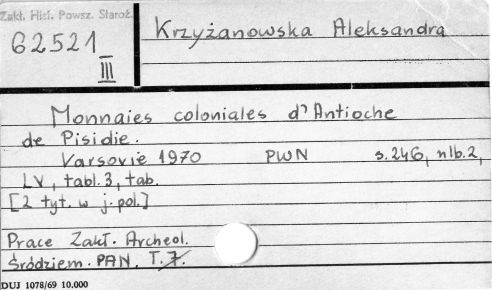 Zakł. Hist. Powsz. Staroż.
62521
III
Krzyżanowska Aleksandra
Monnaies coloniales d'Antioche
de Pisidie.
Varsovie 1970 PWN s. 246, nlb. 2,
LV, tabl. 3, tab.
[2 tyt. w j. pol.]
Prace Zakł. Archeol.
Śródziem. PAN. T. 7.
DUJ 1078/69 10.000